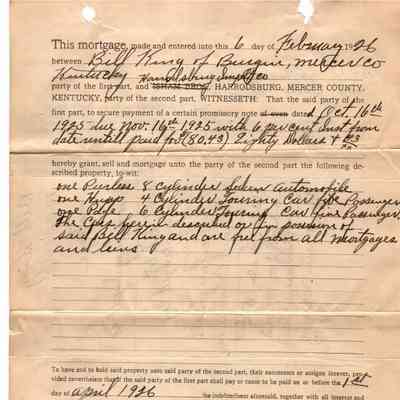 This mortgage, made and entered into this 6 day of February 1926
between Bill King of Burgin, Mercer Co
Kentucky Harrodsburg Implt Co
party of the first part, and ISHAM BROS., HARRODSBURG, MERCER COUNTY,
KENTUCKY, party of the second part, WITNESSETH: That the said party of the
first part, to secure payment of a certain promissory note of even dated Oct 16th
1925 due Nov. 16th 1925 with 6 per cent Int from
date untill paid for (80.43) Eighty Dollars & 43
hereby grant, sell and mortgage unto the party of the second part the following de-
scribed property, to-wit:
one Peerless 8 cylinder Sedan Automobile
one Hupp 4 Cylinder Touring Car five Passenger
one Paige 6 Cylinder Touring Car five Passenger
The Cars herein described are in possession of
said Bill King and are free from all mortgages
and liens
To have and to hold said property unto said party of the second part, their successors or assigns forever, pro-
vided nevertheless that if the said party of the first part shall pay or cause to be paid as or before the 1st
day of april 1926 the indebtedness aforesaid, together with all interest and